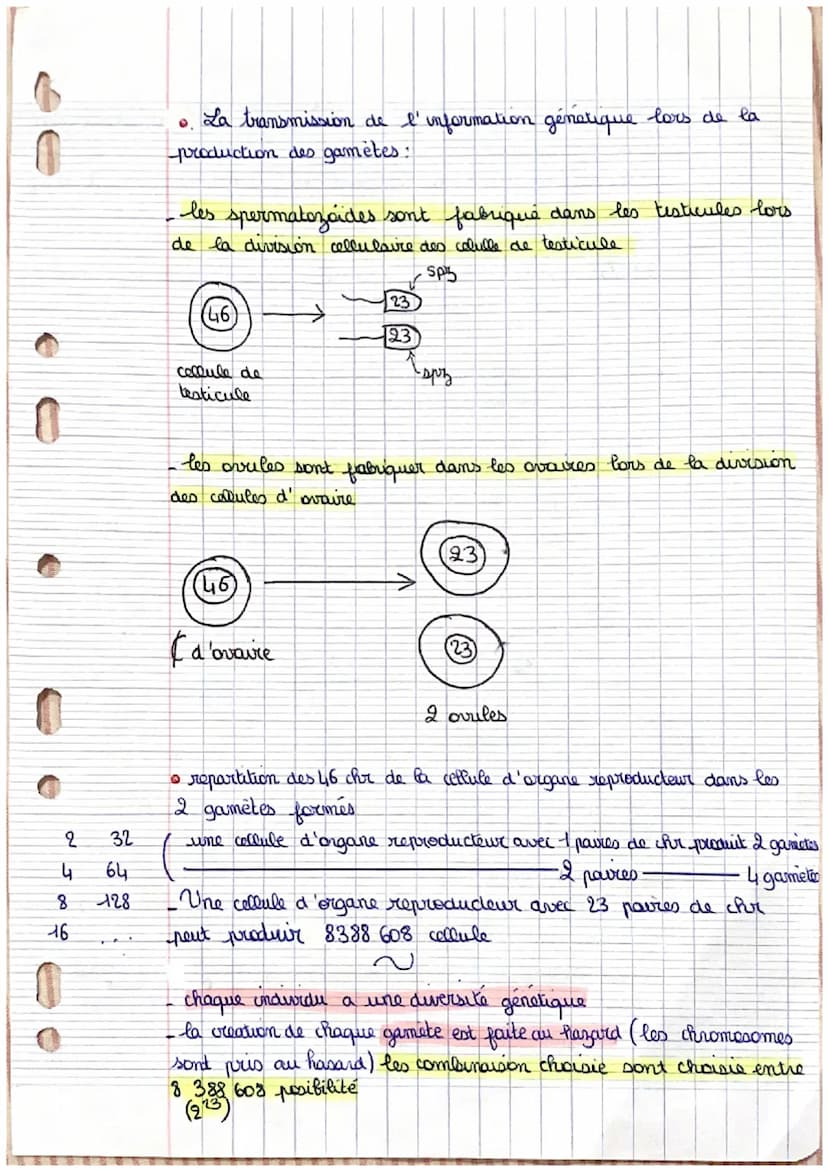 • La transmission de l'information génétique lors de la
production des gamètes :
- les spermatozoïdes sont fabriqué dans les testicules lors
de la division cellulaire des celulle de testicule
spz
46
23
23
spz
cellule de
testicule
- les ovules sont fabriquer dans les ovaires lors de la division
des cellules d'ovaire
23
46
23
₵ d'ovaire
2 ovules
• repartition des 46 chr de la cellule d'organe reproducteur dans les
2 gamètes formés
2 32 une cellule d'organe reproducteur avec 1 paires de chr produit 2 gamètes
4 64 2 paires 4 gamètes
8 128 - Une cellule d'organe reproducteur avec 23 paires de chr
16 ... peut produir 8388 608 cellule
- chaque individu a une diversité génétique
- la creation de chaque gamète est faite au hazard (les chromosomes
sont pris au hasard) les combinaison choisie sont choisie entre
8 388 608 posibilité
(2²³)